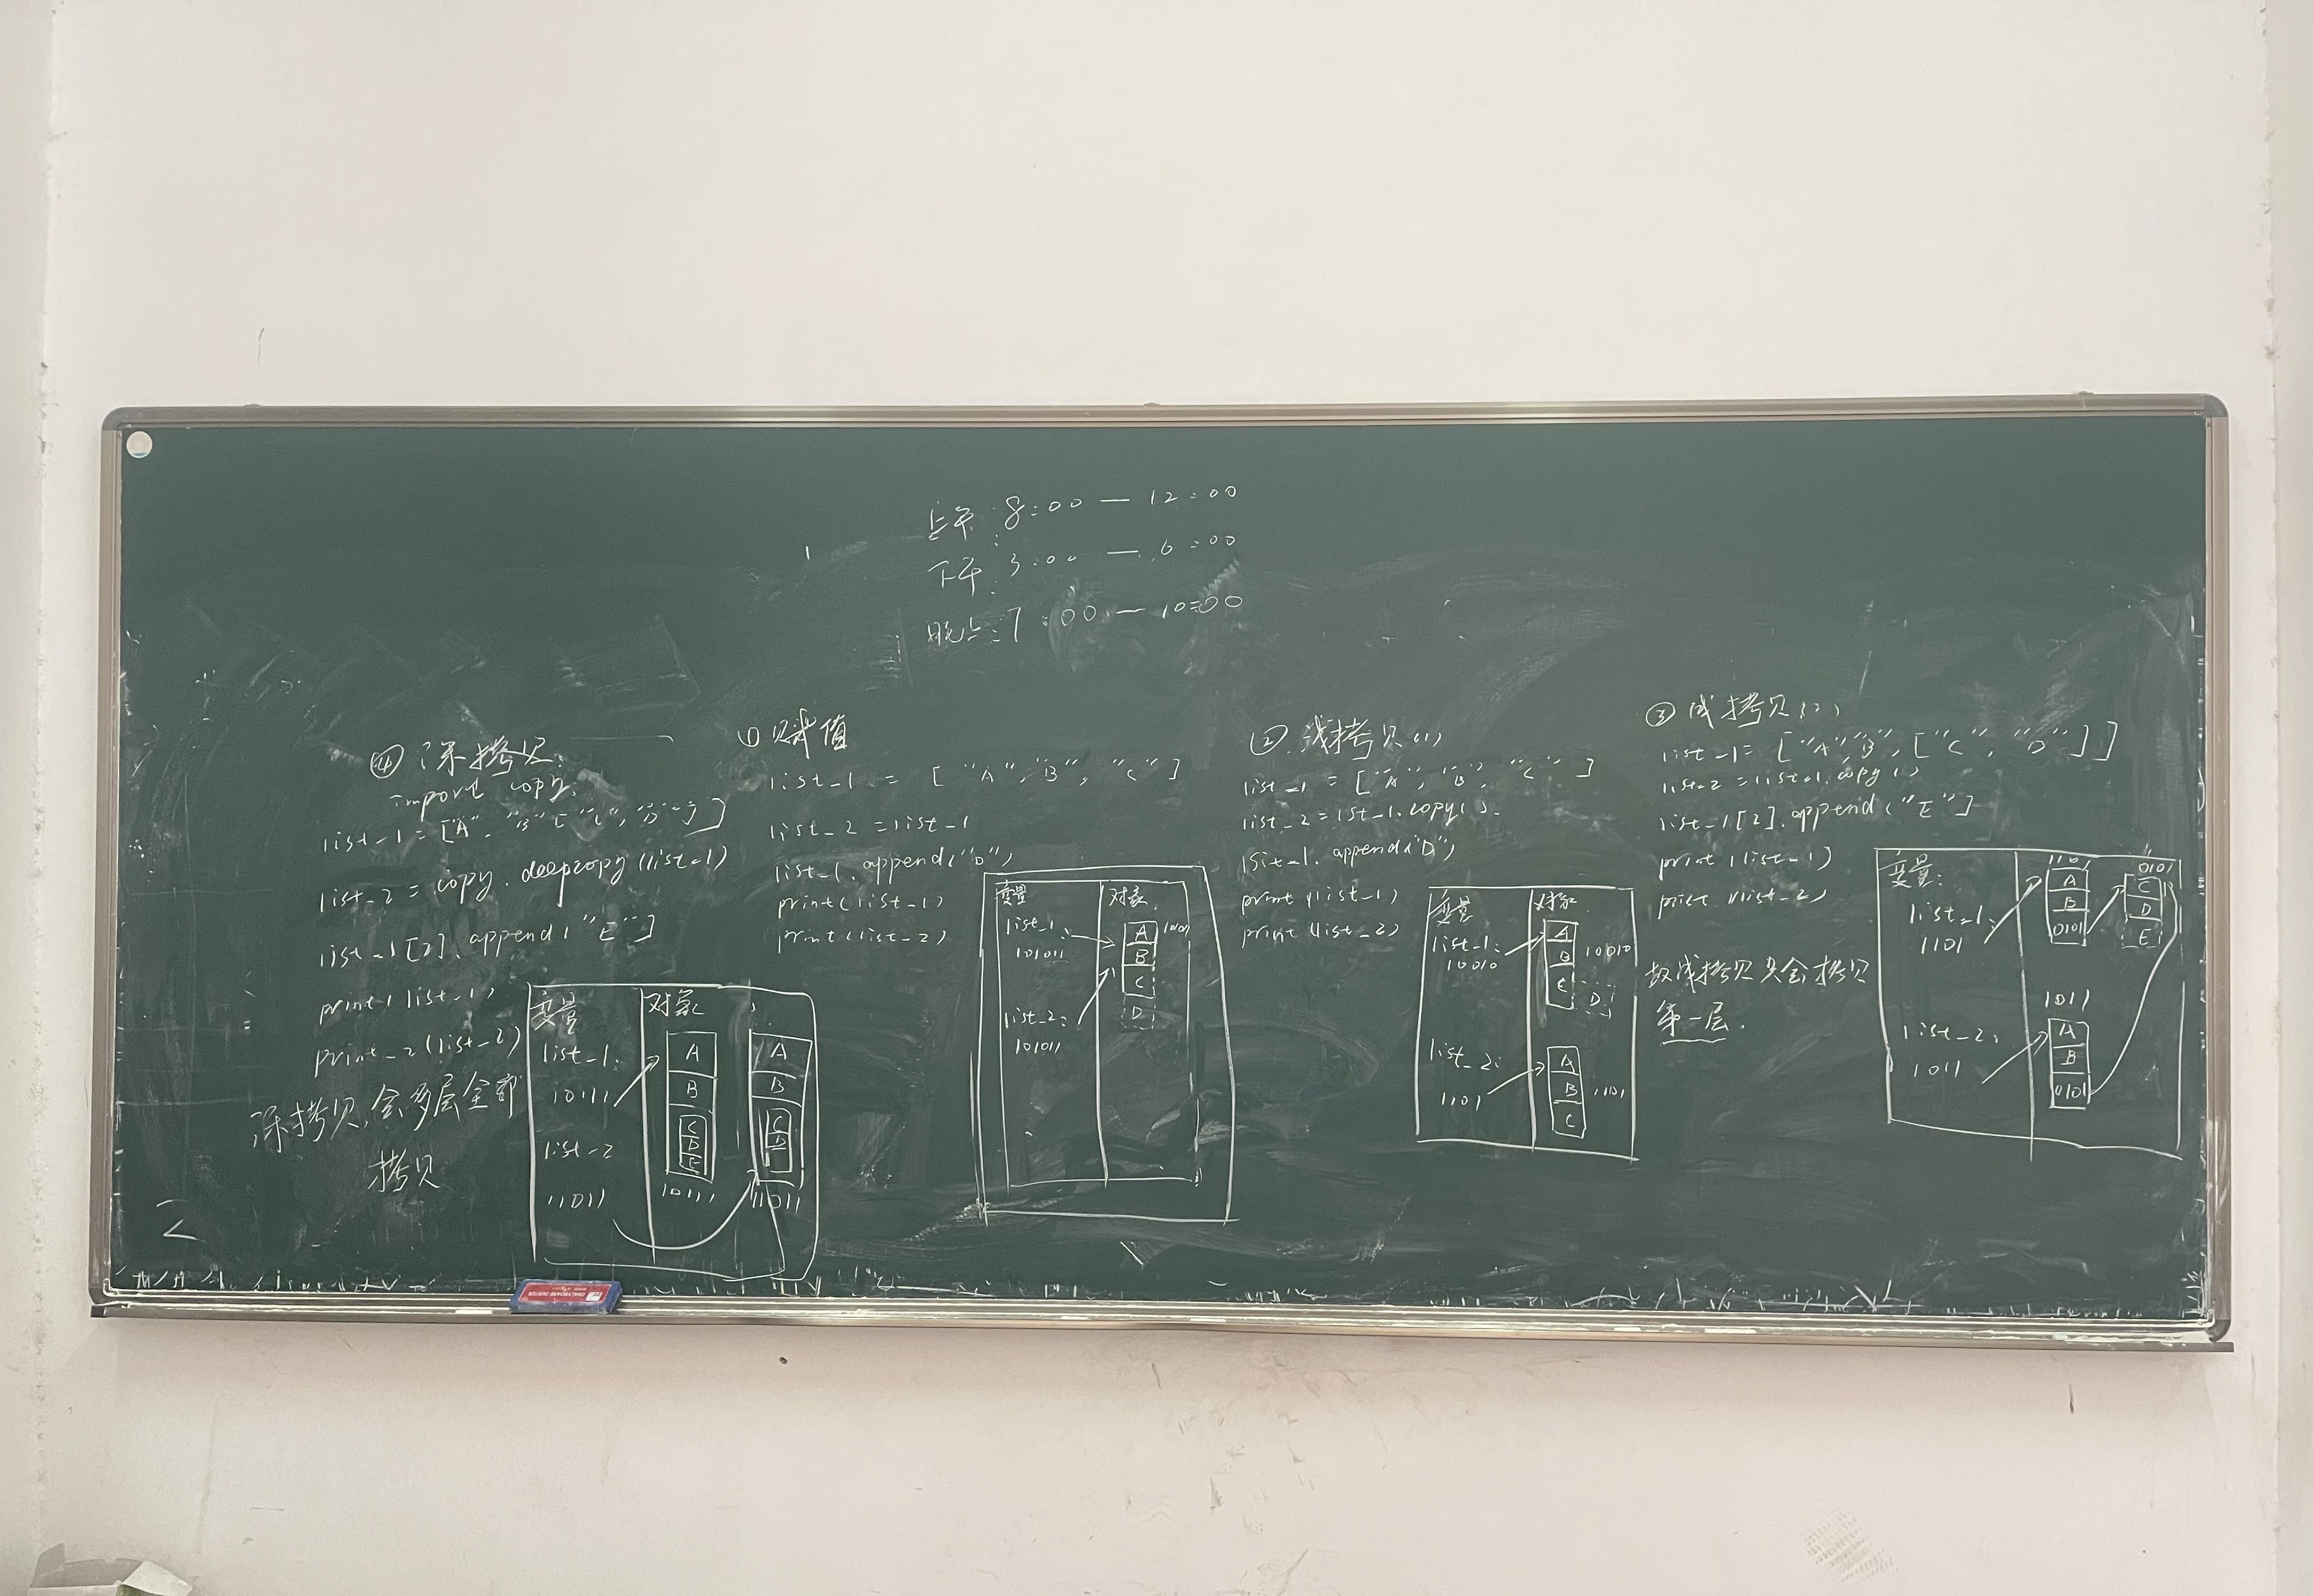 上午:8:00 — 12:00
下午:3:00 — 6:00
晚上:7:00 — 10:00
① 赋值
list_1 = ["A","B","C"]
list_2 = list_1
list_1.append("D")
print(list_1)
print(list_2)
变量 对象
list_1: A 10101
101011 B
C
list_2: D
101011
② 浅拷贝(1)
list_1 = ["A","B","C"]
list_2=list_1.copy().
lsit_1.append("D")
print(list_1)
print(list_2)
变量 对象
list_1: A
10010 B 10010
C D
list_2: A
1101 B 1101
C
③ 浅拷贝(2)
list_1= ["A","B",["C","D"]]
list_2 =list_1.copy()
list_1[2].append("E"]
print(list_1)
print(list_2)
故浅拷贝只会拷贝
第一层.
变量: 1101 0101
list_1: A C
1101 B D
0101 E
1011
list_2: A
1011 B
0101
④ 深拷贝:
import copy.
list_1=["A","B",["C","D"]]
list_2 = copy.deepcopy(list_1)
list_1[2].append("E"]
print(list_1)
print_2(list_2)
深拷贝,会多层全部
拷贝
变量 对象
list_1: A A
10111 B B
C C
list_2 D D
E
11011 10111 11011
CHALKBOARD DUSTER